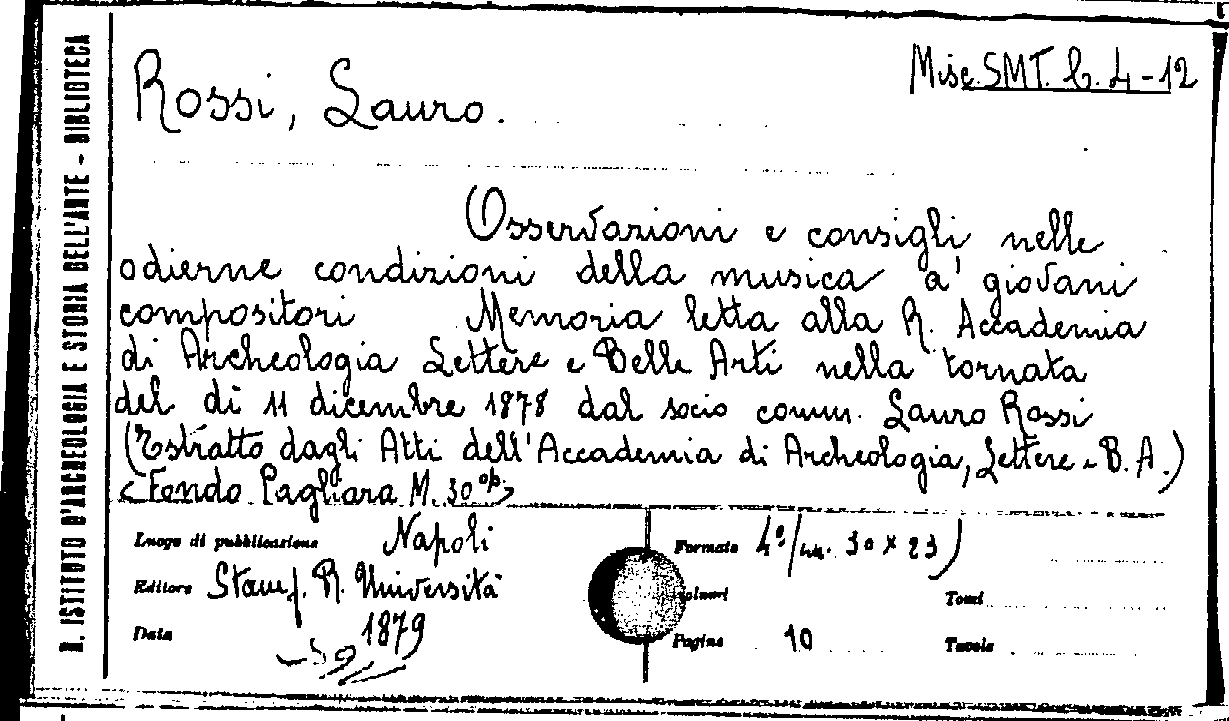 R. ISTITUTO D'ARCHEOLOGIA E STORIA DELL'ARTE - BIBLIOTECA
Misc. SMT. C. 4-12
Rossi, Lauro.
Osservazioni e consigli nelle
odierne condizioni della musica a' giovani
compositori Memoria letta alla R. Accademia
di Archeologia Lettere e Belle Arti nella tornata
del dì 11 dicembre 1878 dal socio comm. Lauro Rossi
(Estratto dagli Atti dell'Accademia di Archeologia, Lettere e B. A.)
<Fondo Pagliara M. 30 op.>
Luogo di pubblicazione Napoli
Formato 4º/cm. 30 x 23)
Editore Stamp. R. Università
Volumi
Tomi
Data 1879
Pagine 10
Tavole